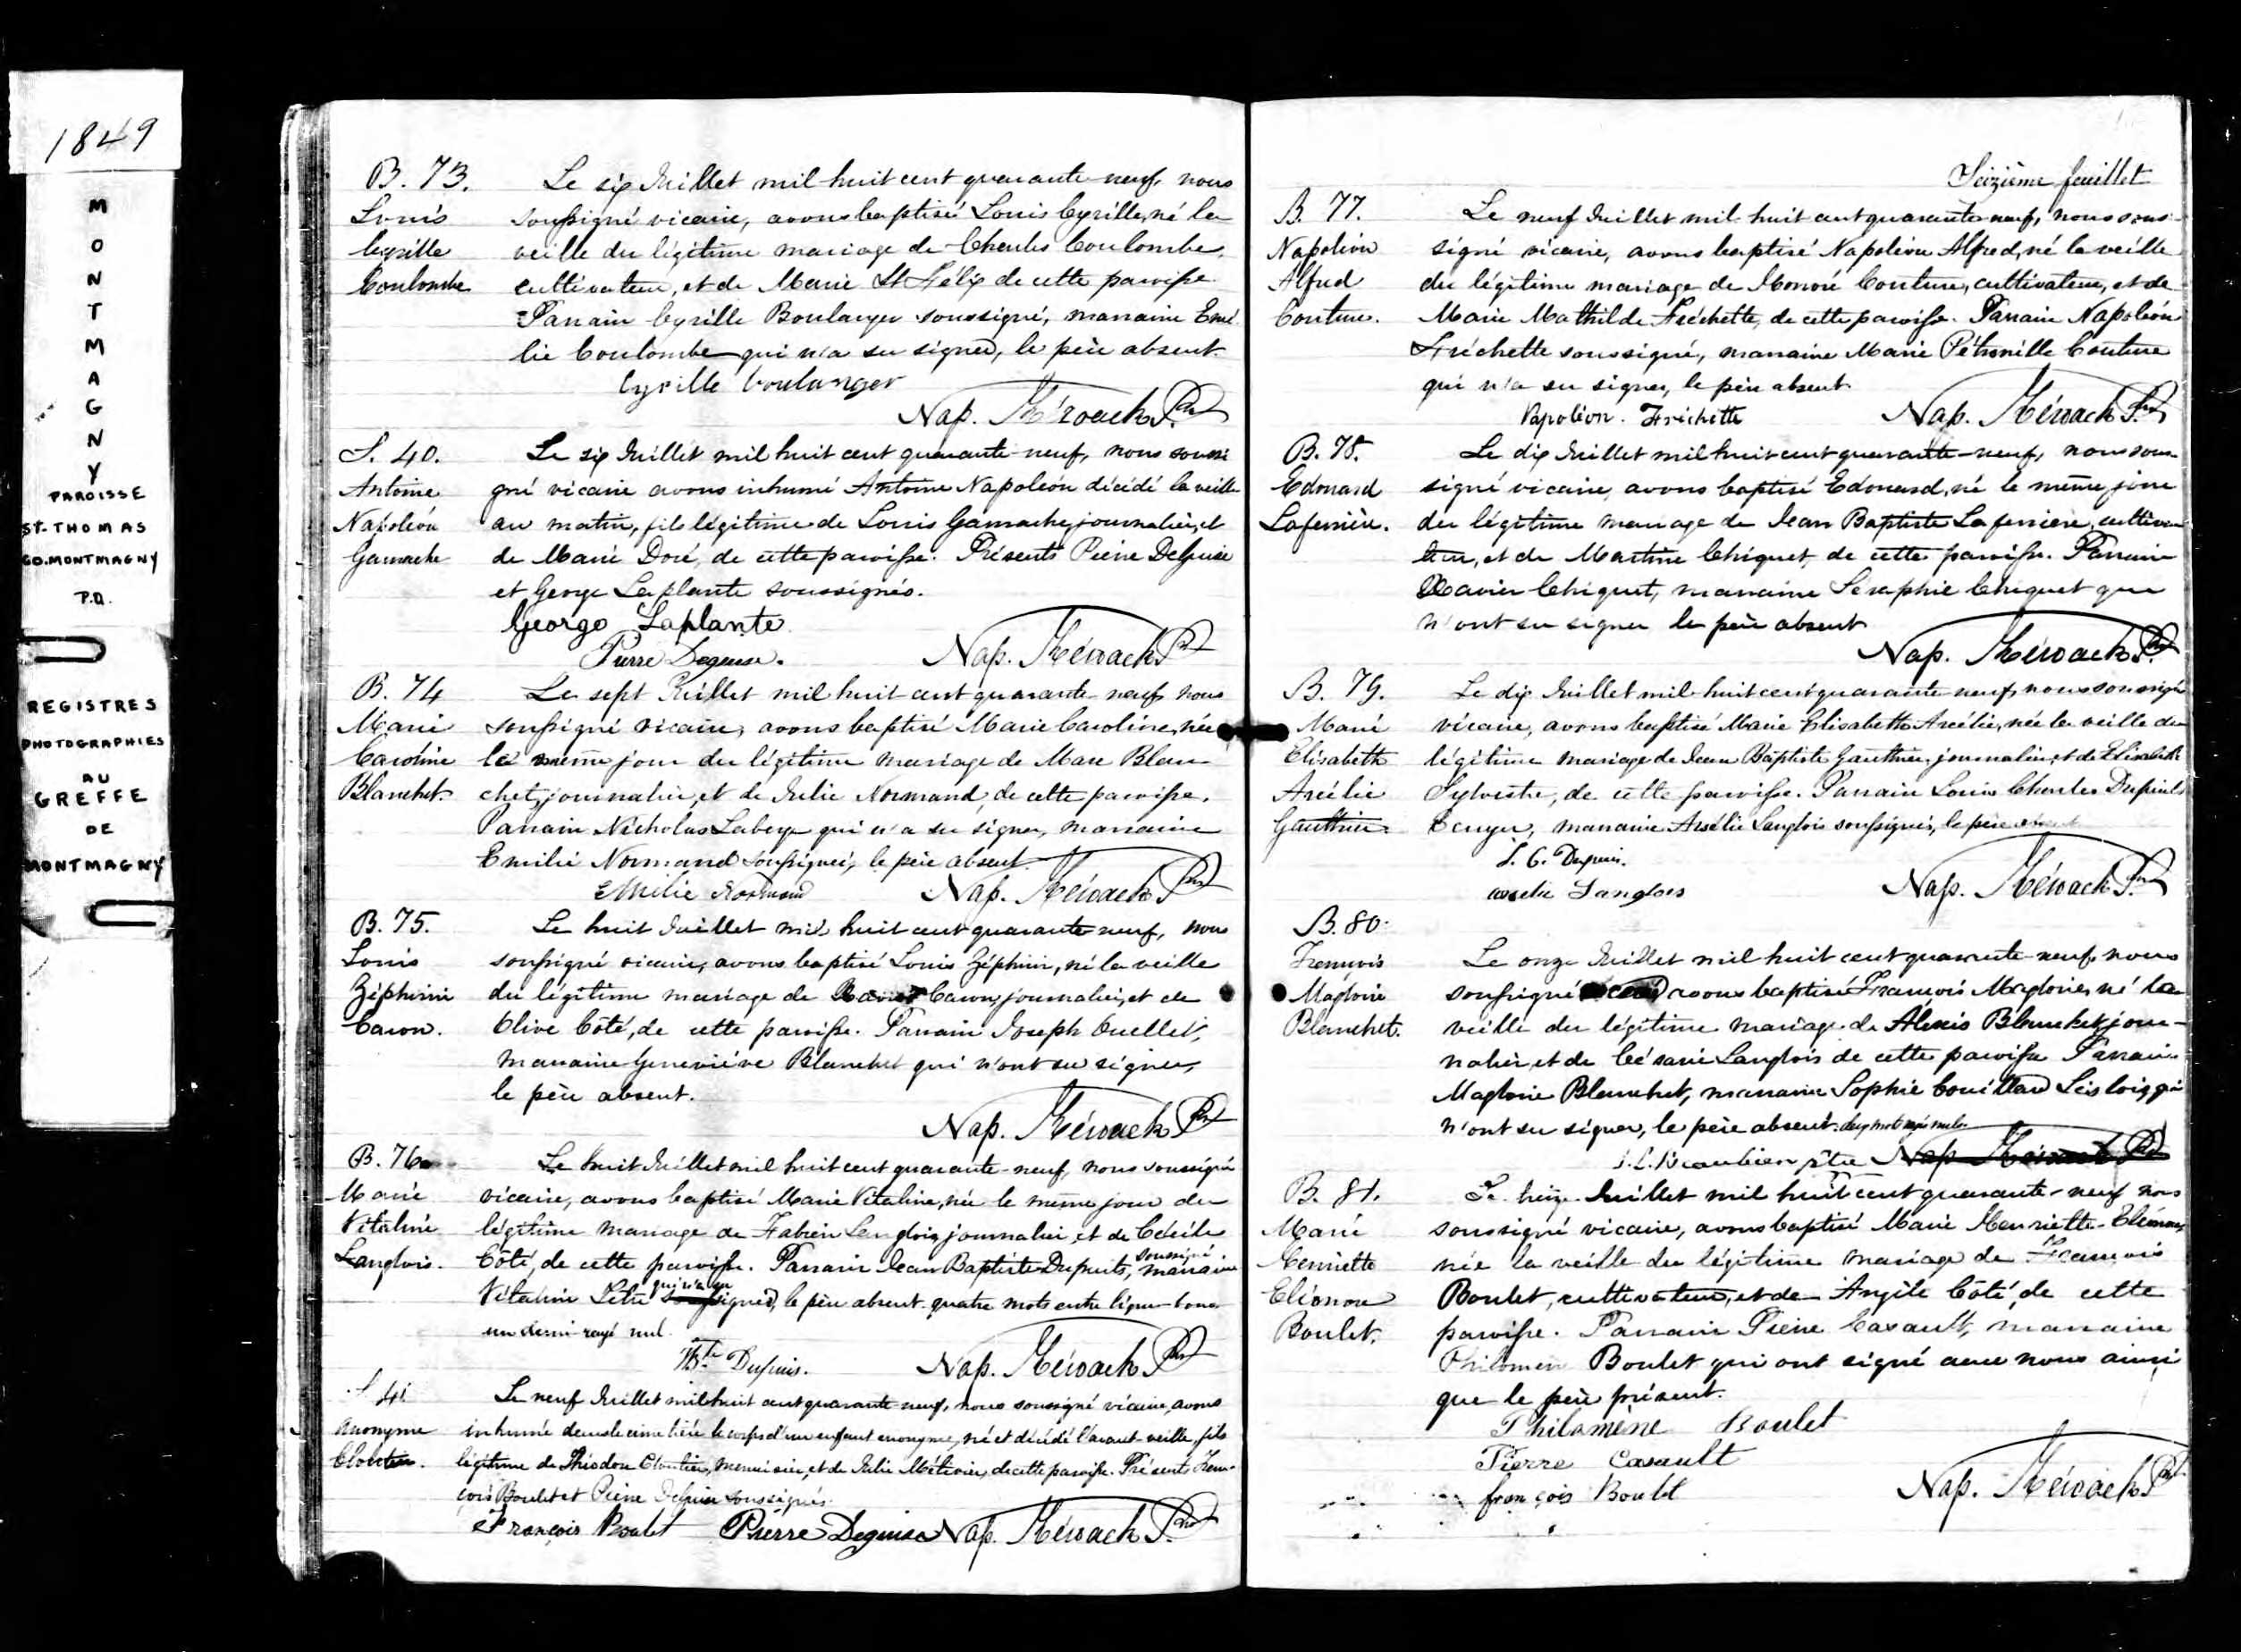 1849
MONTMAGNY
PAROISSE
ST-THOMAS
CO. MONTMAGNY
P.Q.
REGISTRES
PHOTOGRAPHIES
AU
GREFFE
DE
MONTMAGNY
B. 73.
Louis
Cyrille
Coulombe
Le six Juillet mil huit cent quarante-neuf, nous
soussigné vicaire, avons baptisé Louis Cyrille, né la
veille du légitime mariage de Charles Coulombe,
cultivateur, et de Marie St Félix de cette paroisse.
Parrain Cyrille Boulanger soussigné, marraine Emé
lie Coulombe qui n'a su signer, le père absent.
Cyrille boulanger
Nap. Kéroack Ptre
S. 40.
Antoine
Napoléon
Gamache
Le six Juillet mil huit cent quarante-neuf, nous soussi
gné vicaire avons inhumé Antoine Napoléon décédé la veille
au matin, fils légitime de Louis Gamache, journalier, et
de Marie Doré, de cette paroisse. Présents Pierre Deguise
et George Laplante soussignés.
George Laplante
Pierre Deguise.
Nap. Kéroack Ptre
B. 74
Marie
Caroline
Blanchet.
Le sept Juillet mil huit cent quarante-neuf, nous
soussigné vicaire, avons baptisé Marie Caroline, née
le même jour du légitime mariage de Marc Blan-
chet, journalier, et de Julie Normand, de cette paroisse.
Parrain Nicholas Laberge qui n'a su signer, marraine
Emilie Normand soussignée, le père absent.
Emilie Normand
Nap. Kéroack Ptre
B. 75.
Louis
Zéphirin
Caron.
Le huit Juillet mil huit cent quarante neuf, nous
soussigné vicaire, avons baptisé Louis Zéphirin, né la veille
du légitime mariage de Caron, journalier, et de
Olive Côté, de cette paroisse. Parrain Joseph Ouellet,
marraine Geneviéve Blanchet qui n'ont su signer,
le père absent.
Nap. Kéroack Ptre
B. 76
Marie
Vitaline
Langlois.
Le huit Juillet mil huit cent quarante-neuf, nous soussigné
vicaire, avons baptisé Marie Vitaline, née le même jour du
légitime mariage de Fabien Langlois, journalier, et de Cécile
Côté, de cette paroisse. Parrain Jean Baptiste Dupuis, soussigné, marraine
Vitaline qui n'a su signer, le père absent. quatre mots entre lignes bons
un demi rayé nul.
JBte Dupuis.
Nap. Kéroack Ptre
S 41
anonyme
Cloutier.
Le neuf Juillet mil huit cent quarante-neuf, nous soussigné vicaire, avons
inhumé dans le cimetière le corps d'un enfant anonyme, né et décédé l'avant-veille, fils
légitime de Théodore Cloutier, menuisier, et de Julie Métivier, de cette paroisse. Présents Fran-
çois Boulet et Pierre Deguise soussignés.
François Boulet Pierre Deguise Nap. Kéroack Ptre
Seizième feuillet
B. 77.
Napoléon
Alfred
Couture.
Le neuf Juillet mil huit cent quarante-neuf, nous sous-
signé vicaire, avons baptisé Napoléon Alfred, né la veille
du légitime mariage de Honoré Couture, cultivateur, et de
Marie Mathilde Fréchette, de cette paroisse. Parrain Napoléon
Fréchette soussigné, marraine Marie Pétronille Couture
qui n'a su signer, le père absent.
Napoléon. Fréchette
Nap. Kéroack Ptre
B. 78.
Edouard
Laferrière.
Le dix Juillet mil huit cent quarante-neuf, nous sous-
signé vicaire, avons baptisé Edouard, né le même jour
du légitime mariage de Jean Baptiste Laferrière, cultiva
teur, et de Martine Chiquet, de cette paroisse. Parrain
Xavier Chiquet, marraine Séraphie Chiquet qui
n'ont su signer le père absent
Nap. Kéroack Ptre
B. 79.
Marie
Elisabeth
Arcélie
Gauthier
Le dix Juillet mil huit cent quarante neuf, nous soussigné
vicaire, avons baptisé Marie Elisabeth Arcélie, née la veille du
légitime mariage de Jean Baptiste Gauthier, journalier, et de Elisabeth
Sylvestre, de cette paroisse. Parrain Louis Charles Dupuis
Ecuyer, marraine Arsélie Langlois soussignés, le père absent
L. C. Dupuis.
Langlois
Nap. Kéroack Ptre
B. 80.
François
Magloire
Blanchet.
Le onze Juillet mil huit cent quarante-neuf, nous
soussigné avons baptisé François Magloire, né la
veille du légitime mariage de Alexis Blanchet, jour-
nalier, et de Césarie Langlois de cette paroisse Parrain
Magloire Blanchet, marraine Sophie Couillard qui
n'ont su signer, le père absent. deux mots rayés nuls.
J. L. Beaubien ptre Nap. Kéroack Ptre
B. 81.
Marie
Henriette
Eléonore
Boulet.
Le treize Juillet mil huit cent quarante-neuf nous
soussigné vicaire, avons baptisé Marie Henriette Eléonore,
née la veille du légitime mariage de François
Boulet, cultivateur, et de Angèle Côté, de cette
paroisse. Parrain Pierre Casault, marraine
Philomène Boulet qui ont signé avec nous ainsi
que le père présent.
Philomène Boulet
Pierre Casault
françois Boulet
Nap. Kéroack Ptre